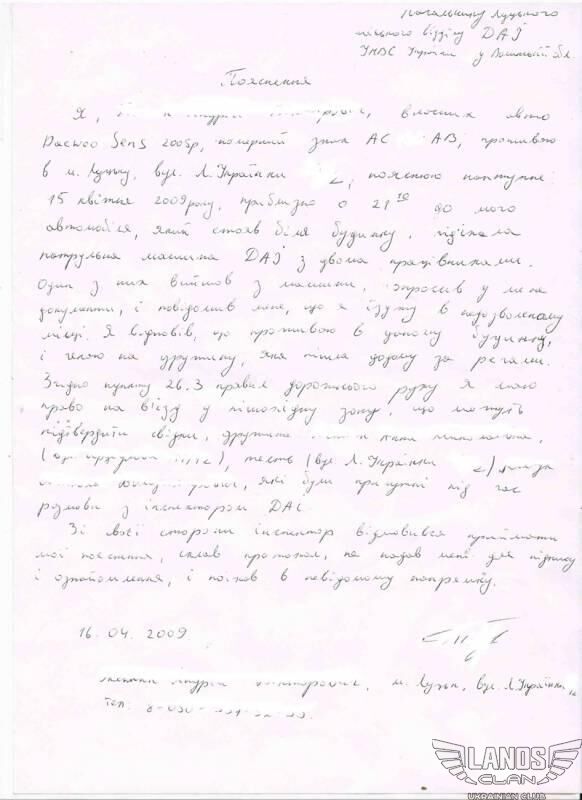 Начальнику Луцького
міського відділу ДАІ
УМВС України у Волинській обл.
Пояснення
Я, власник авто
Daewoo Sens 2005р, номерний знак АС АВ, проживаю
в м. Луцьку, вул. Л.Українки 2, пояснюю наступне:
15 квітня 2009року, приблизно о 21 10 до мого
автомобіля, який стояв біля будинку, під'їхала
патрульна машина ДАІ з двома працівниками.
Один з них вийшов з машини, запросив у мене
документи, і повідомив мене, що я їзджу в недозволеному
місці. Я відповів, що проживаю в даному будинку,
і чекаю на дружину, яка пішла додому за речами.
Згідно пункту 26.3 правил дорожнього руху я маю
право на в'їзд у пішохідну зону, що можуть
підтвердити свідки, дружина
тесть (вул. Л.Українки 2)
які були присутні під час
розмови з інспектором ДАІ.
Зі своєї сторони інспектор відмовився приймати
мої пояснення, склав протокол, не надав мені для підпису
і ознайомлення, і поїхав в невідомому напрямку.
16.04.2009
м. Луцьк, вул. Л.Українки
тел:
LANOS
CLAN
UKRAINIAN CLUB